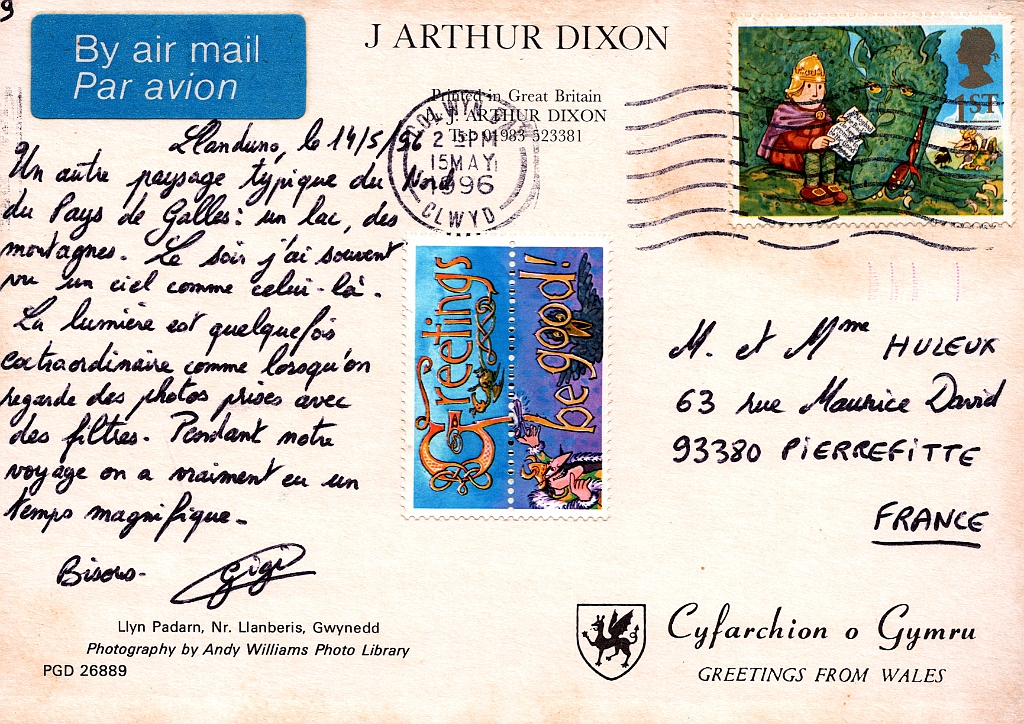 9
By air mail
Par avion
J ARTHUR DIXON
Printed in Great Britain
J. ARTHUR DIXON
Tel: 01983 523381
15MAY
1996
CLWYD
1ST
Llanduno, le 14/5/96
Un autre paysage typique du Nord
du Pays de Galles: un lac, des
montagnes. Le soir j'ai souvent
vu un ciel comme celui-là.
La lumière est quelquefois
extraordinaire comme lorsqu'on
regarde des photos prises avec
des filtres. Pendant notre
voyage on a vraiment eu un
temps magnifique.
Bisous.
Gigi
Greetings
be good!
M. et Mme HULEUX
63 rue Maurice David
93380 PIERREFITTE
FRANCE
Llyn Padarn, Nr. Llanberis, Gwynedd
Photography by Andy Williams Photo Library
PGD 26889
Cyfarchion o Gymru
GREETINGS FROM WALES